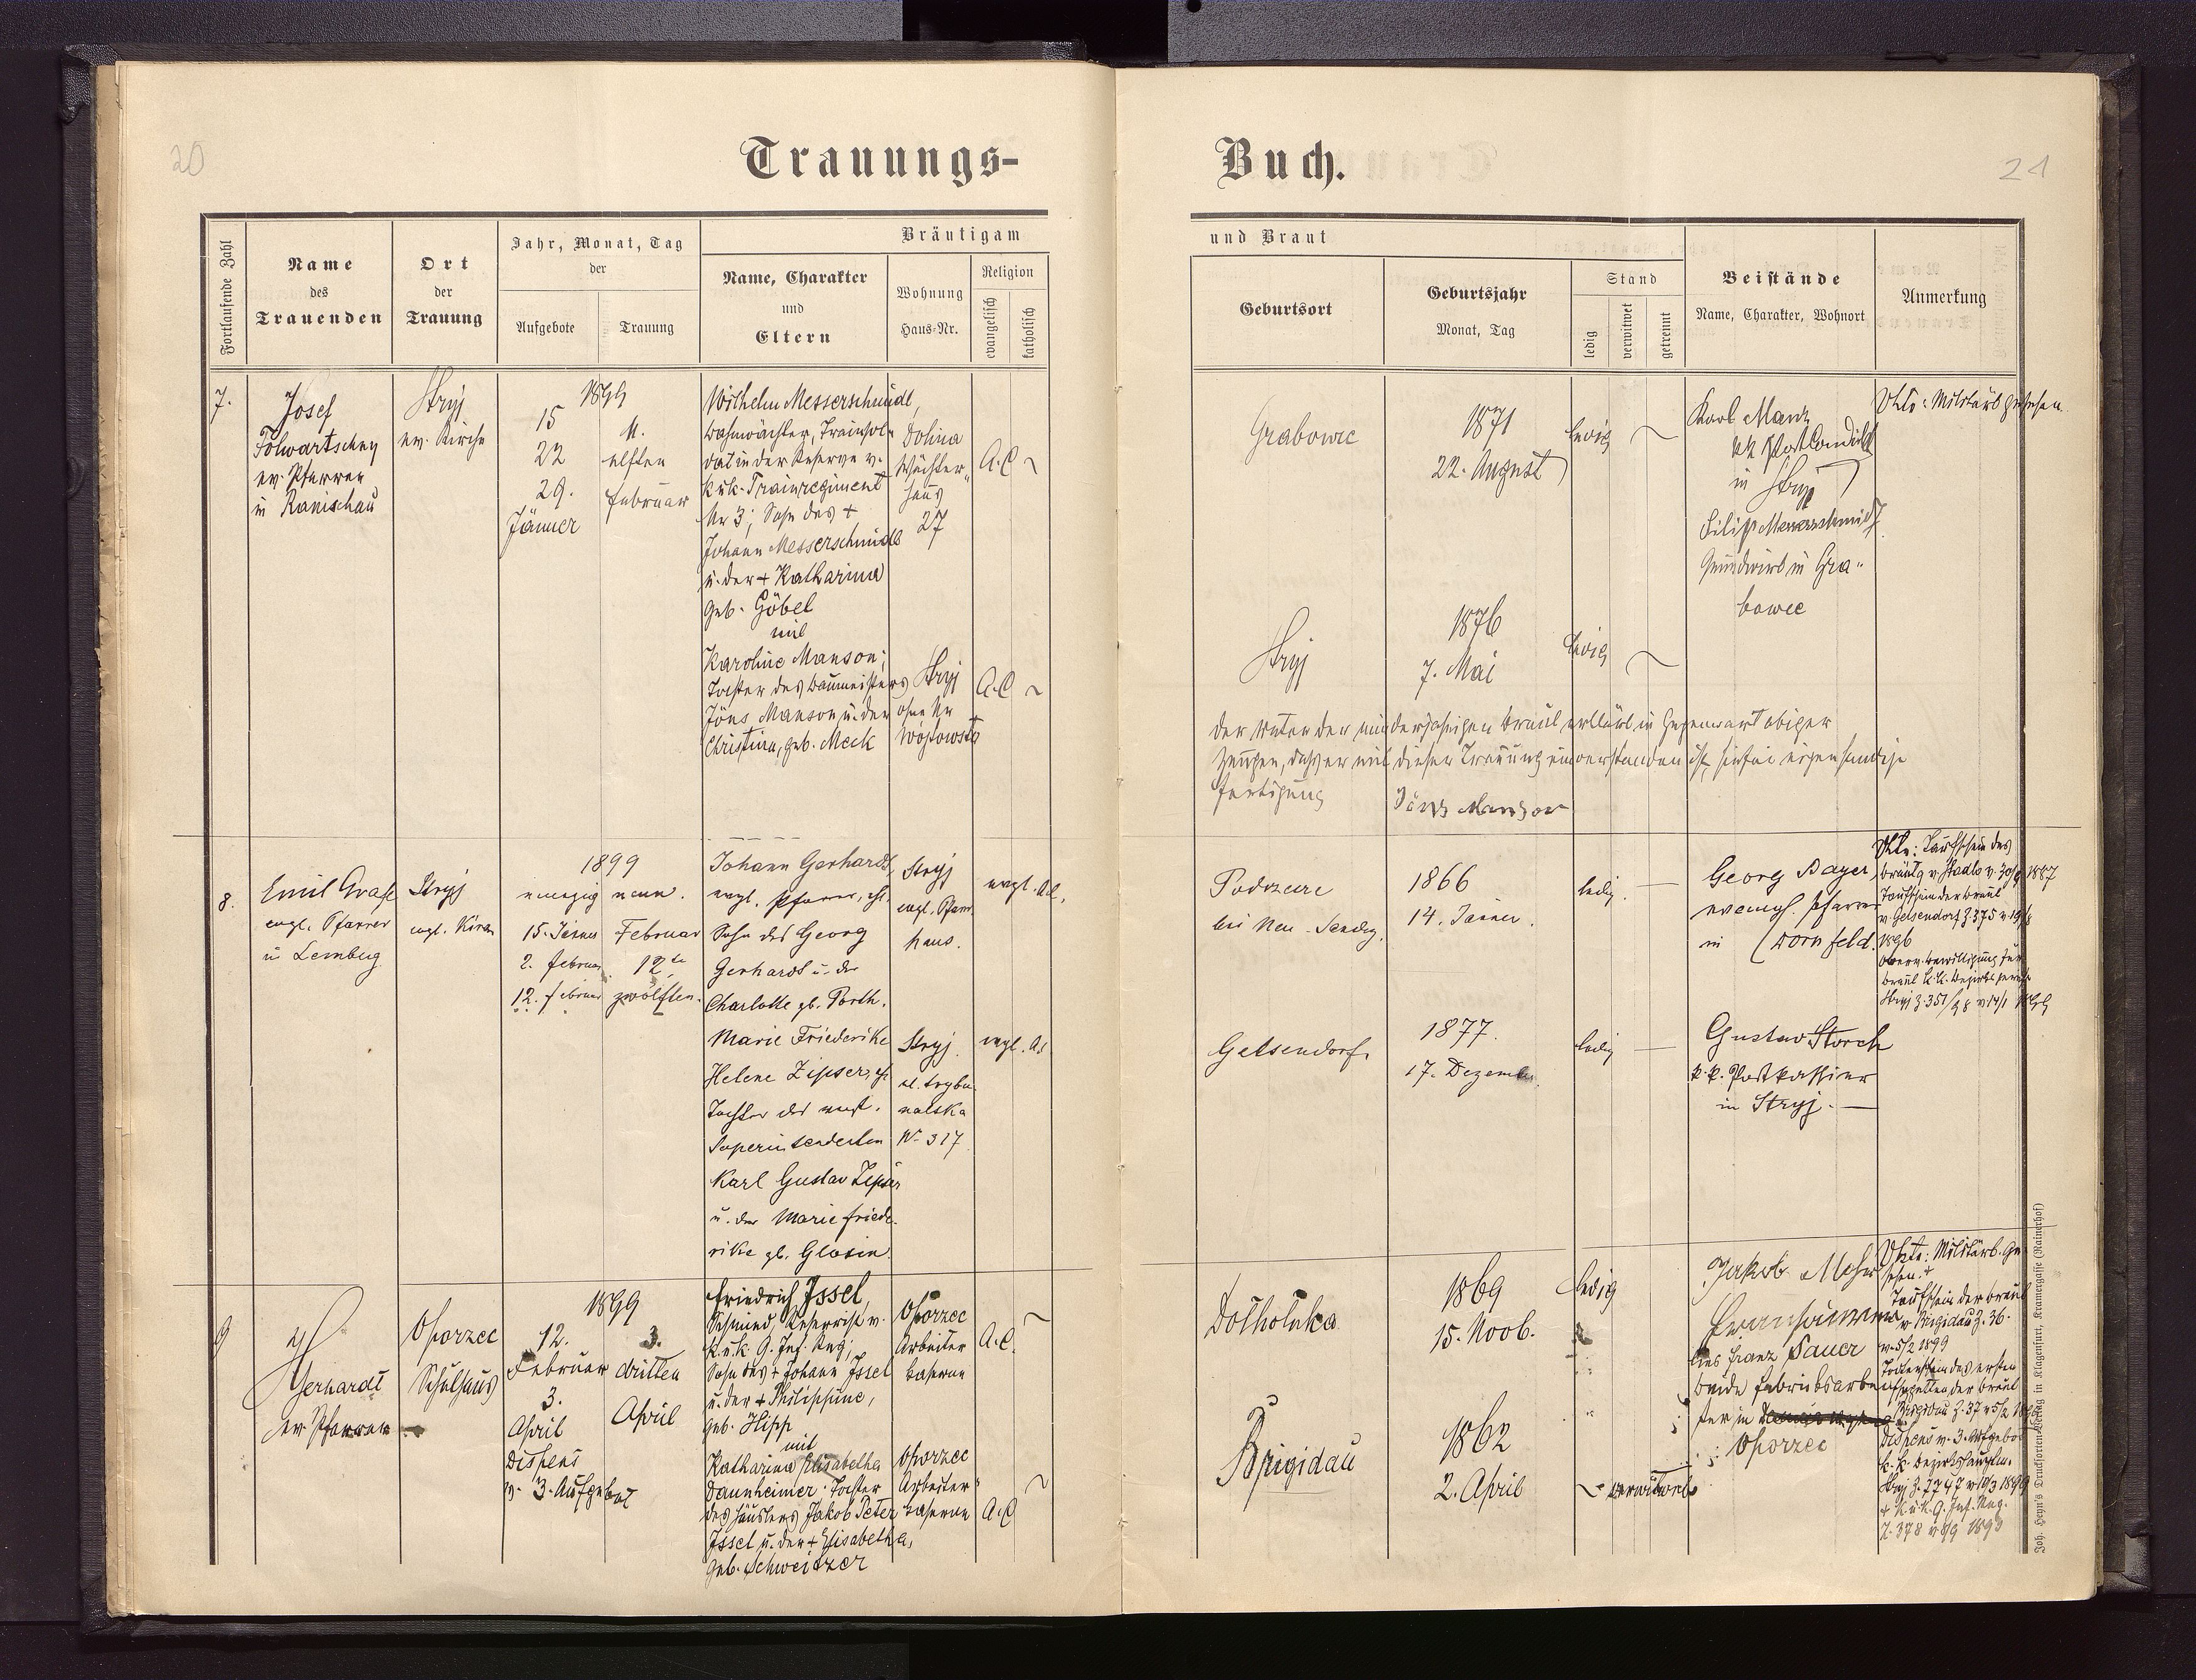 20
21
Trauungs-
Buch.
Fortlaufende Zahl
Name
des
Trauenden
Ort
der
Trauung
Jahr, Monat, Tag
der
Aufgebote
Trauung
Bräutigam
Name, Charakter
und
Eltern
Wohnung
Haus-Nr.
Religion
evangelisch
katholisch
und Braut
Geburtsort
Geburtsjahr
Monat, Tag
Stand
ledig
verwitwet
getrennt
Beistände
Name, Charakter, Wohnort
Anmerkung
7.
Josef
Folwartschny
ev. Pfarrer
in Ranischau
Stryj
ev. Kirche
1899
15
22
29.
Jänner
11.
elften
Februar
Wilhelm Messerschmidt,
Bahnwächter, Trainsol-
dat in der Reserve v.
k. u. k. Trainregiment
Nr 3; Sohn des +
Johann Messerschmidt
u. der + Katharina
geb. Göbel
mit
Karoline Manson;
Tochter des Baumeisters
Jöns Manson u. der
Christina, geb. Meck
Dolina
Wächter-
haus
27
A.C
Stryj
ohne Nr
Wojtowsta
A.C
Grabowce
1871
22. August
ledig
Karl Manz
kk Post
in Stryj
Filip Messerschmidt
Grundwirt in Gra-
bowce
Militärb gesehen
Stryj
1876
7. Mai
ledig
Der Vater der minderjährigen Braut erklärt in Gegenwart obiger
Zeugen, daß er mit dieser Trauung einverstanden ist, hiefür eigenhändige
Fertigung
Jöns Manson
8.
Emil Grafl
evgl. Pfarrer
in Lemberg
Stryj
evgl. Kirche
1899
neunzig neun.
15. Jänner
2. Februar
12. Februar
Februar
12te
zwölften.
Johann Gerhardt,
evgl. Pfarrer, ehl.
Sohn des Georg
Gerhardt u. der
Charlotte gb. Porth.
Marie Friederike
Helene Zipser, ehl.
Tochter des
Superintendenten
Karl Gustav Zipser
u. der Marie Friede-
rike gb. Glosin.
Stryj
evgl. Pfarr-
haus.
evgl. A.C.
Stryj.
ul. trybu-
nalska
No 317
evgl. A.C.
Podrzecze
bei Neu-Sandez.
1866
14. Jänner.
ledig.
Georg Bayer,
evangl. Pfarrer
in Dornfeld.
Taufschein des
Bräutg. v. Stadlo v. 30/9 1887
Taufschein der Braut
v. Gelsendorf Z 375 v 19/8
1896
Braut k.k. Bezirksgericht
Stryj Z 351/98 v 14/1 1899
Gelsendorf.
1877.
17. Dezember.
ledig
Gustav Storch
k.k. Postkassier
in Stryj.
9
Gerhardt
ev. Pfarrer
Oporzec
Schulhaus
1899
12.
Februar
3.
April
Dispens
v. 3. Aufgebot
3.
dritten
April
Friedrich Issel,
Schmied Reservist v.
k.u.k. 9. Inf. Reg;
Sohn des + Johann Issel
u. der + Philippine,
geb. Hipp
mit
Katharina Elisabetha
Dannheimer Tochter
des Häuslers Jakob Peter
Issel u. der + Elisabetha,
geb. Schweitzer
Oporzec
Arbeiter
kaserne
A.C.
Oporzec
Arbeiter-
kaserne
A.C
Dolholuka
1869
15. Novb.
ledig
Jakob Mohr
Franz Sauer
beide Fabriksarbei-
ter in
Oporzec
Militärb. ge-
sehen. +
Taufschein der Braut
v. Brigidau Z. 36.
v. 5/2 1899
Totenschein des ersten
der Braut
Brigidau Z. 37 v 5/2 1899
Dispens v. 3. Aufgebot
k.k. Bezirkshauptm.
Stryj Z. 7747 v 19/3 1899
+ K.u.K. 9. Inf. Reg.
Z. 378 v 8/9 1893
Brigidau
1862
2. April
verwitwet
Joh. Heyn's Drucksorten-Verlag in Klagenfurt, Kramergasse (Rainerhof)